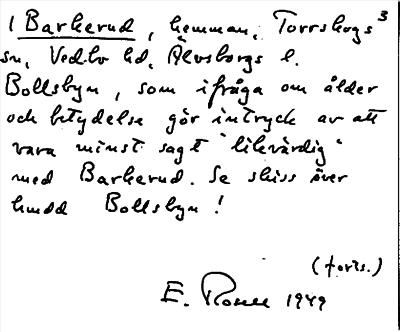 1 Barkerud, hemman, Torrskogs 3
sn, Vedbo hd, Älvsborgs l.
Bollsbyn, som ifråga om ålder
och betydelse gör intryck av att
vara minst sagt "likvärdig"
med Barkerud. Se skiss över
Bollsbyn!
(forts.)
E. 1949